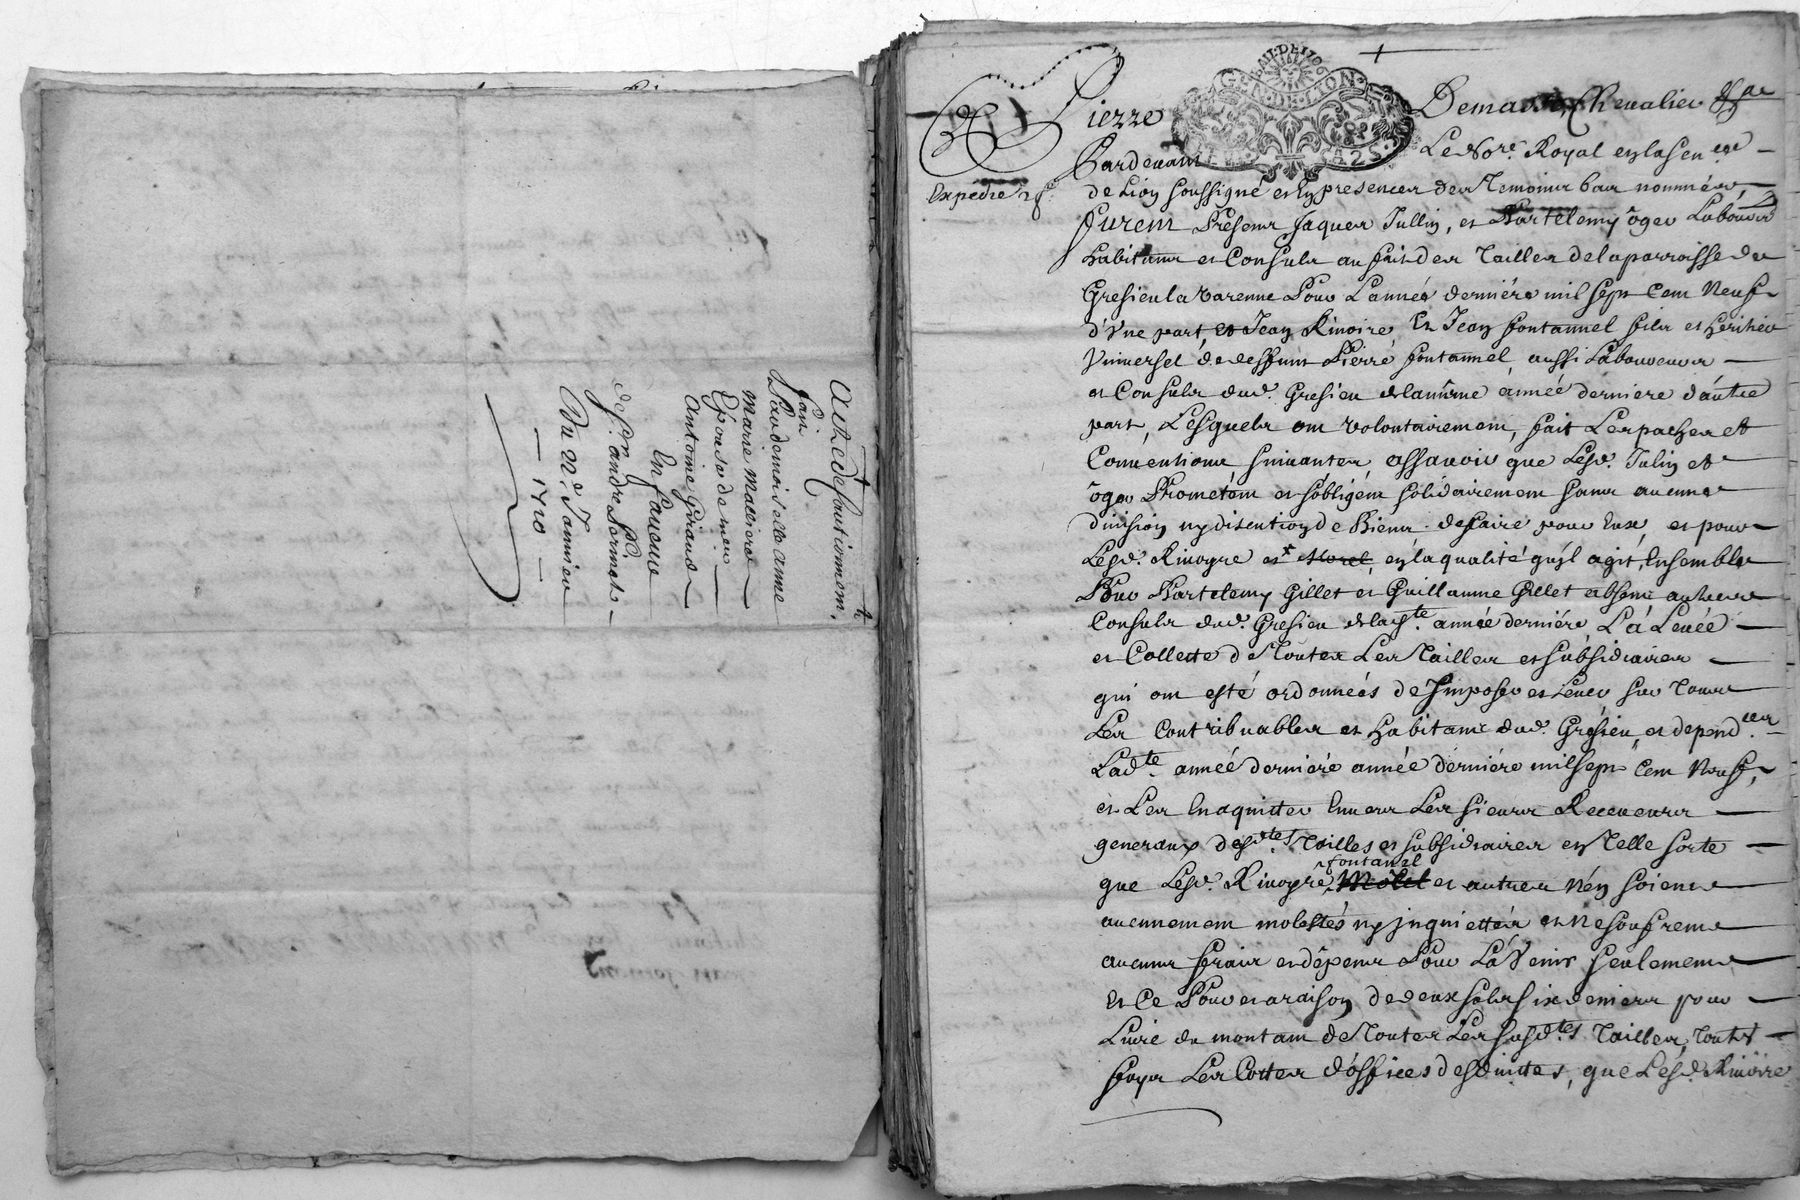 Acte de cautionnem.t
fait
Par demoiselle anne
marie mazieres
Epouse de meis.
antoine Giraud
En faveur
de s.r andre Formet
Du 22.e Janvier
1710
Pierre Demasso, Chevalier
G. N. DE LYON
Pardevant Le No.re Royal en la sen.ée
Expédié
de Lion soussigné et En presence des Temoins bas nommés,
Furent Presens Jaques Jullin, et Bartelemy ôger Laboureurs
habitans et Consuls au fait des Tailles de la parroisse de
Gresieu la varenne Pour L'année derniére mil sept Cent Neuf
d'Vne part, et Jean Rivoire Et Jean fontannel fils et heritier
Vniversel de deffunt Pierre fontannel aussi Laboureurs
et Consuls dud. Gresieu de la même année derniere d'autre
part, Lesquels ont volontairement, fait Les paches et
Conventions suivantes, assavoir que Lesd. Julin et
ôger Prometent et s'obligent solidairement sans aucune
division ny discution de Biens de faire pour Eux, et pour
Lesd. Rivoyre et Morel, en la qualité qu'il agit, Ensemble
Pour Bartelemy Gillet et Guillaume Gillet absens autres
Consuls dud. Gresieu de lad.te année derniére La Levée
et Collecte de Toutes Les Tailles et subsidiaires
qui ont esté ordonneés d'Imposer et Lever sur Tous
Les Contribuables et habitans dud. Grésieu, et depend.ces
Lad.te année derniére année derniére mil sept Cent Neuf,
et Les En aquitter Envers Les sieurs Receveurs
generaux desd.tes Tailles et subsidiaires en Telle sorte
fontanel
que Lesd. Rivoyre, Morel et autres N'en soient
aucunement molestés ny Inquiettés et Ne soufrent
aucuns frais et dépens Pour L'a Venir seulement
Et Ce Pour et a raison de deux sols six deniers pour
Livre du montant de Toutes Les susd.tes Tailles, Toutes
foys Les Cottes d'offices desduites, que Lesd. Rivoire